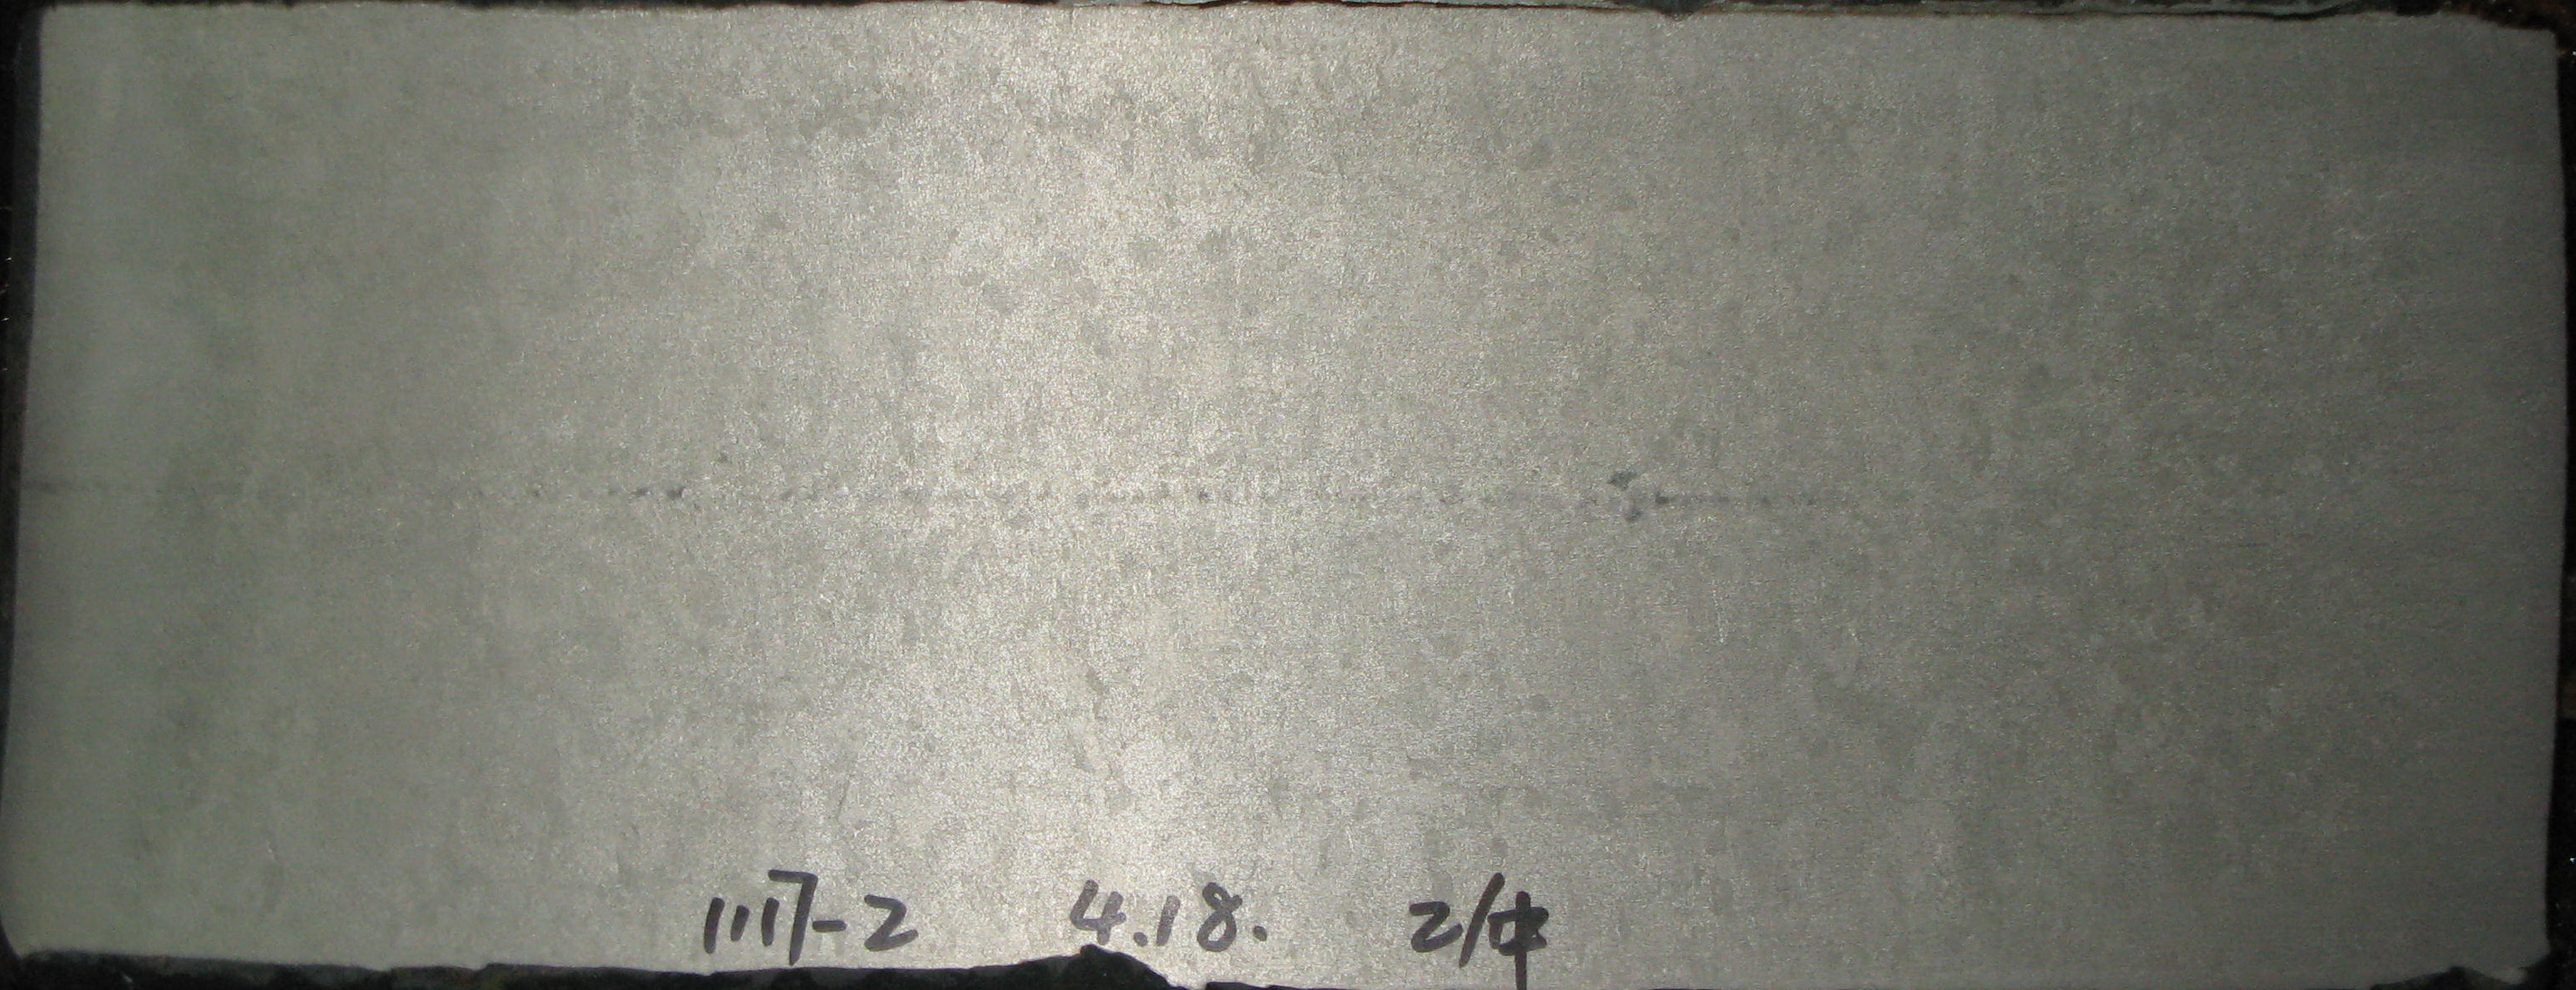 1117-2 4.18. 2/中